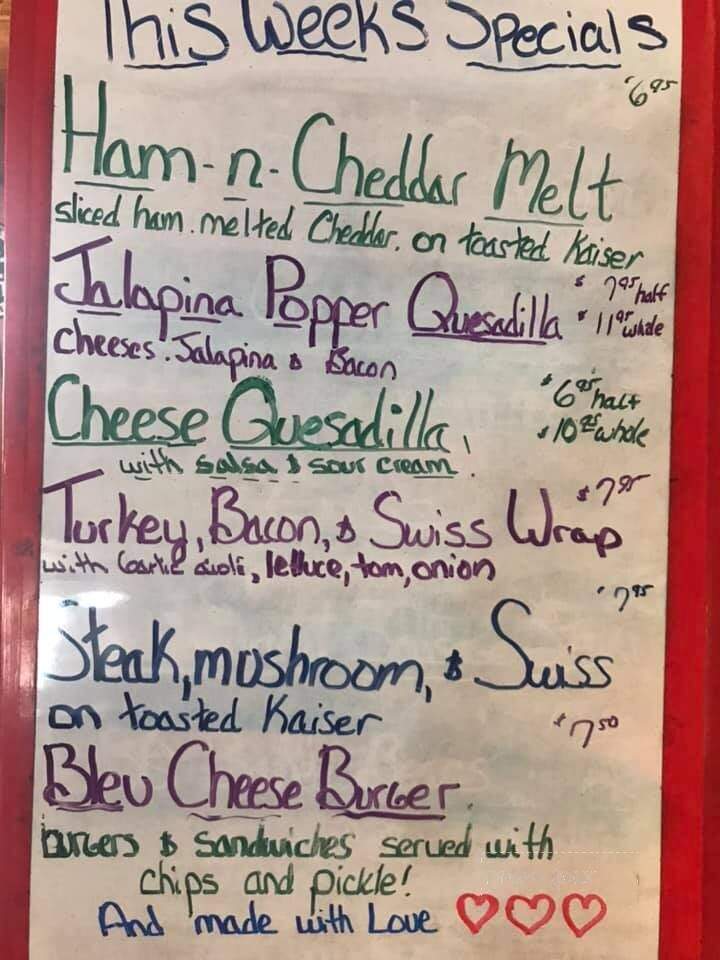 This Weeks Specials
$6.95
Ham-n-Cheddar Melt
sliced ham. melted Cheddar. on toasted Kaiser
Jalapina Popper Quesadilla $7.95 half
$11.95 whole
cheeses. Jalapina & Bacon
Cheese Quesadilla $6.95 half
$10.95 whole
with salsa & sour cream
$7.95
Turkey, Bacon, & Swiss Wrap
with Garlic aioli, lettuce, tom, onion
$7.95
Steak, mushroom, & Swiss
on toasted Kaiser
$7.50
Bleu Cheese Burger.
burgers & sandwiches served with
chips and pickle!
And made with Love